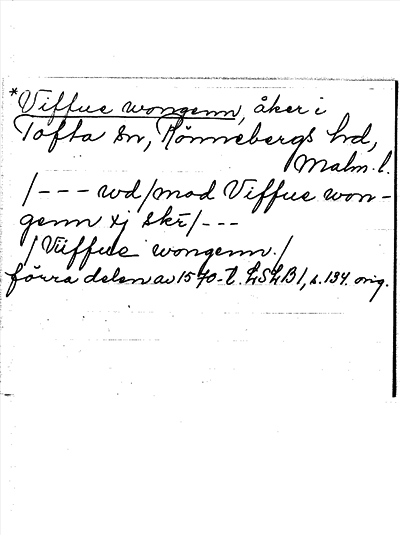 *Viffue wongenn, åker i
Tofta sn, Rönnebergs hd,
Malm. l.
/--- wd/mod Viffue won-
genn xj skr/---
/Viiffues wongenn./
förra delen av 1570-t. LSLB1, s. 134. orig.